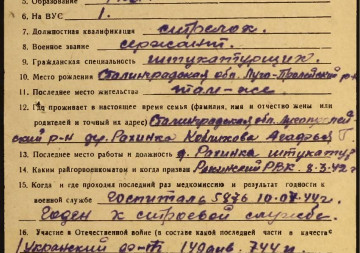 5. Образование
6. На ВУС 1.
7. Должностная квалификация стрелок
8. Военное звание сержант.
9. Гражданская специальность штукатурщик
10. Место рождения Сталинградская обл. р-н
11. Последнее место жительства там-же
12. Где проживает в настоящее время семья (фамилия, имя и отчество жены или
родителей и точный их адрес) Сталинградская обл.
р-н д. Рахинка
13. Последнее место работы и должность д. Рахинка штукатур
14. Каким райгорвоенкоматом и когда призван РВК
15. Когда и где проходил последний раз медкомиссию и результат годности к
военной службе Госпиталь 5876 10.07.44г.
Годен к строевой службе.
16. Участие в Отечественной войне (в составе какой последней части и в качестве
1 Украинский фр-т